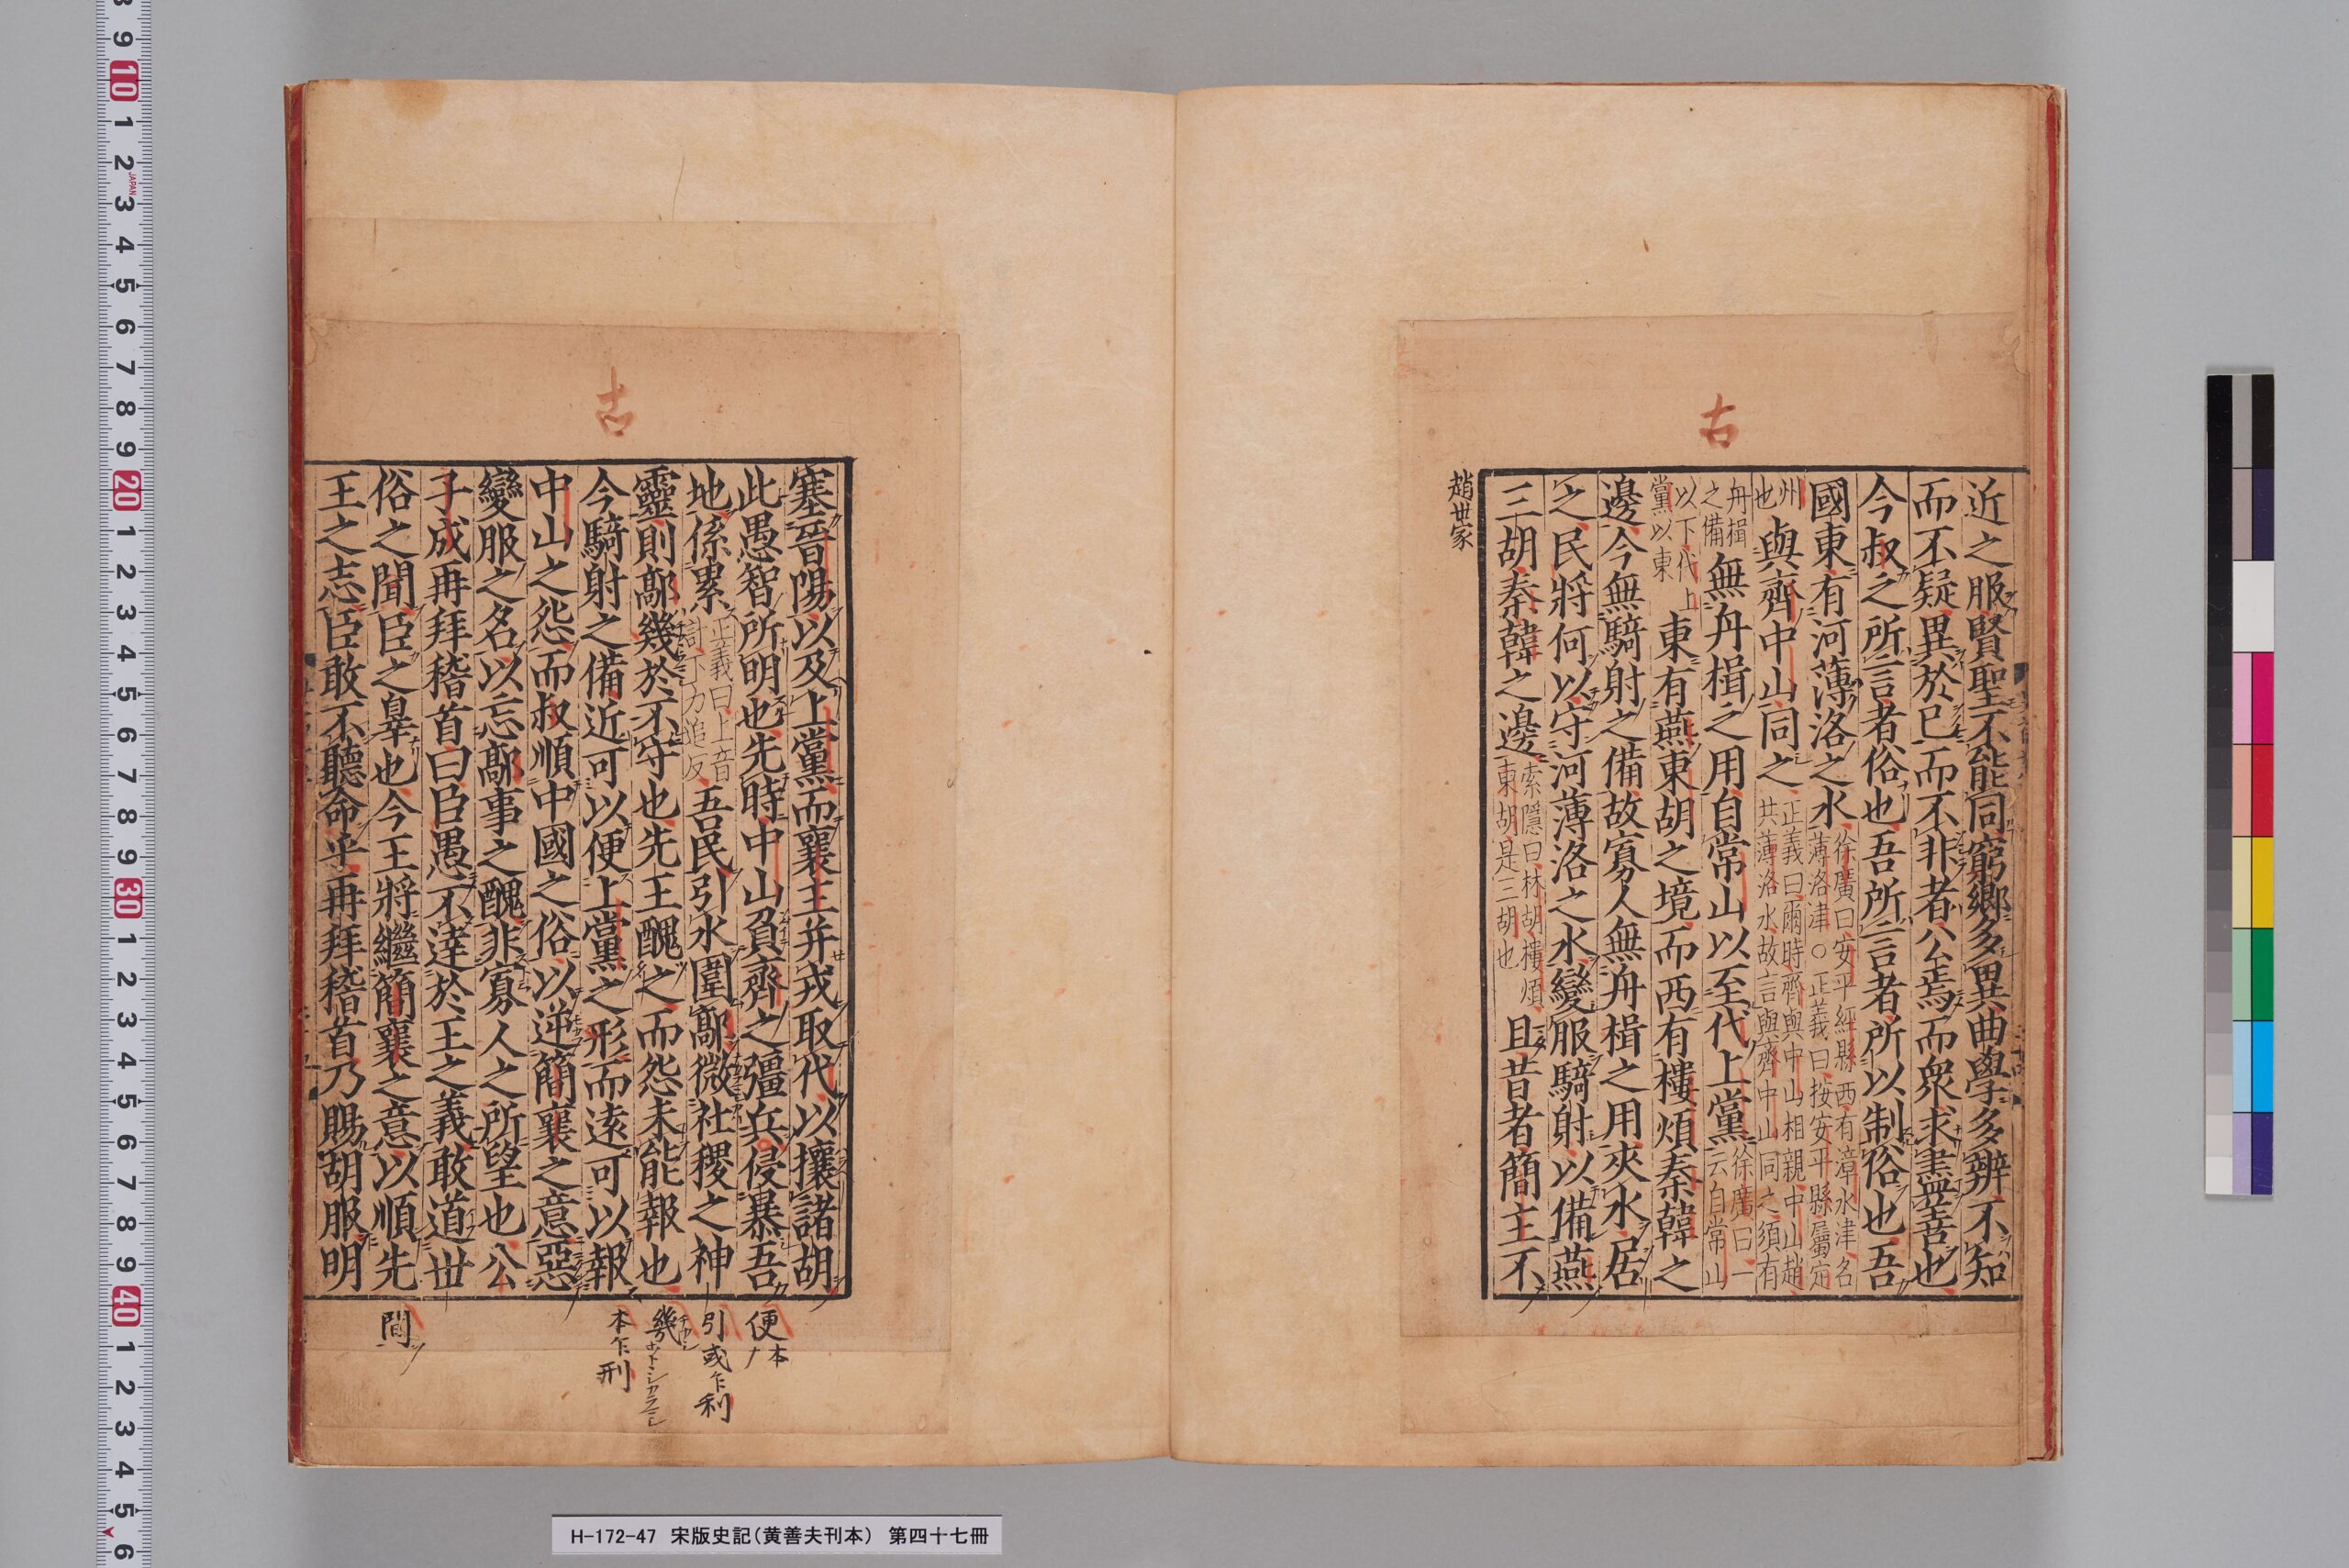 古
近之服賢聖不能同窮鄉多異曲學多辨不知
而不疑異於已而不非者公焉而衆求盡善也
今叔之所言者俗也吾所言者所以制俗也吾
國東有河薄洛之水徐廣曰安平經縣西有漳水津名薄洛津○正義曰按安平縣屬定
州也與齊中山同之正義曰爾時齊與中山相親中山趙共薄洛水故言與齊中山同之須有
舟楫之備無舟楫之用自常山以至代上黨徐廣曰一云自常山
以下代上黨以東東有燕東胡之境而西有樓煩秦韓之
邊今無騎射之備故寡人無舟楫之用夾水居
之民將何以守河薄洛之水變服騎射以備燕
三胡秦韓之邊索隱曰林胡樓煩東胡是三胡也且昔者簡主不
趙世家
古
塞晉陽以及上黨而襄主并戎取代以攘諸胡
此愚智所明也先時中山負齊之彊兵侵暴吾
地係累正義曰上音計下力追反吾民引水圍鄗微社稷之神
靈則鄗幾於不守也先王醜之而怨未能報也
今騎射之備近可以便上黨之形而遠可以報
中山之怨而叔順中國之俗以逆簡襄之意惡
變服之名以忘鄗事之醜非寡人之所望也公
子成再拜稽首曰臣愚不達於王之義敢道世
俗之聞臣之辠也今王將繼簡襄之意以順先
王之志臣敢不聽命乎再拜稽首乃賜胡服明
便本ナ
引或乍利
幾
本乍刑
間
H-172-47 宋版史記(黄善夫刊本) 第四十七冊
8
9
10
1
2
JAPAN
3
4
5
6
7
8
9
20
1
2
3
4
5
6
7
8
9
30
1
2
3
4
5
6
7
8
9
40
1
2
3
4
5
6